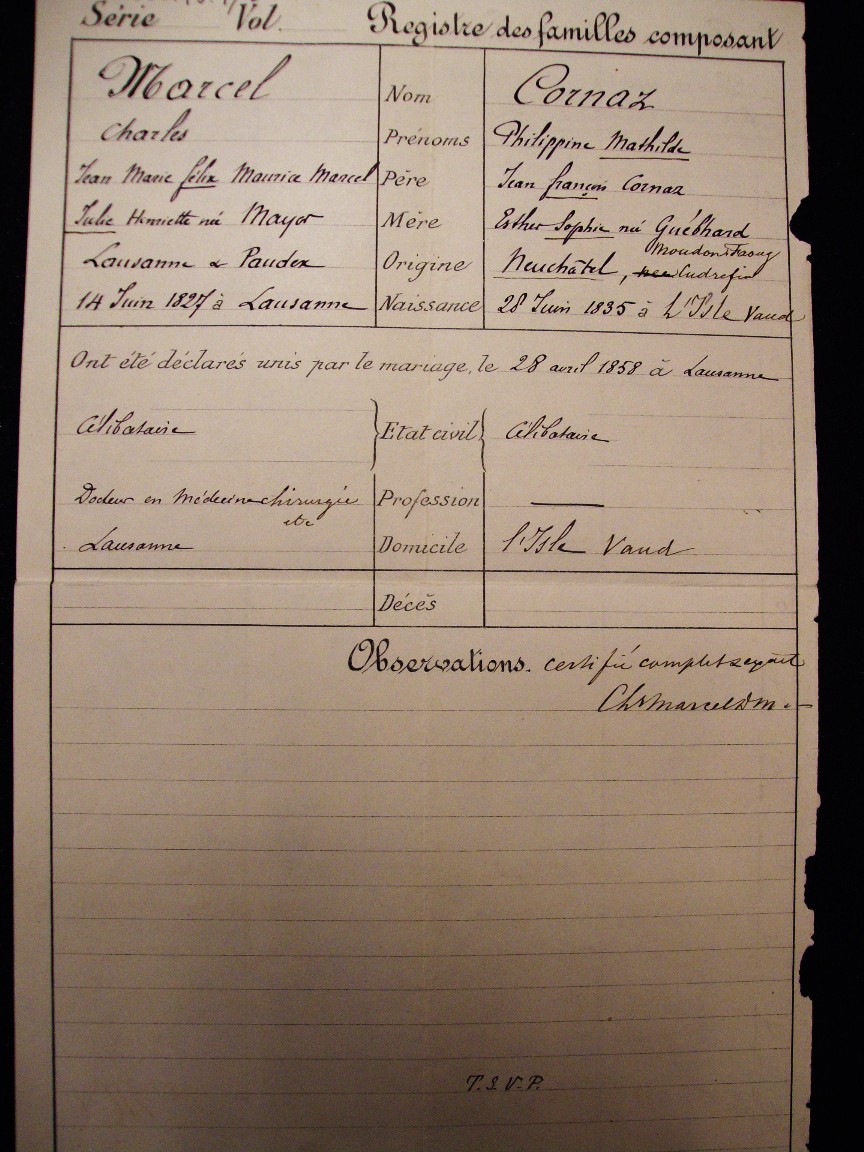 Série Vol. Registre des familles composant
Marcel Nom Cornaz
Charles Prénoms Philippine Mathilde
Jean Marie félix Maurice Marcel Père Jean françois Cornaz
Julie Henriette née Mayor Mère Esther Sophie née Guébhard
Moudon Faoug
Lausanne & Paudex Origine Neuchâtel, Cudrefin
14 Juin 1827 à Lausanne Naissance 28 Juin 1835 à L'Isle Vaud
Ont été déclarés unis par le mariage, le 28 avril 1858 à Lausanne
Célibataire Etat civil Célibataire
Docteur en Médecine chirurgie Profession
etc
Lausanne Domicile l'Isle Vaud
Décès
Observations. certifié complet & exact
Chs Marcel D m.
T.S.V.P.